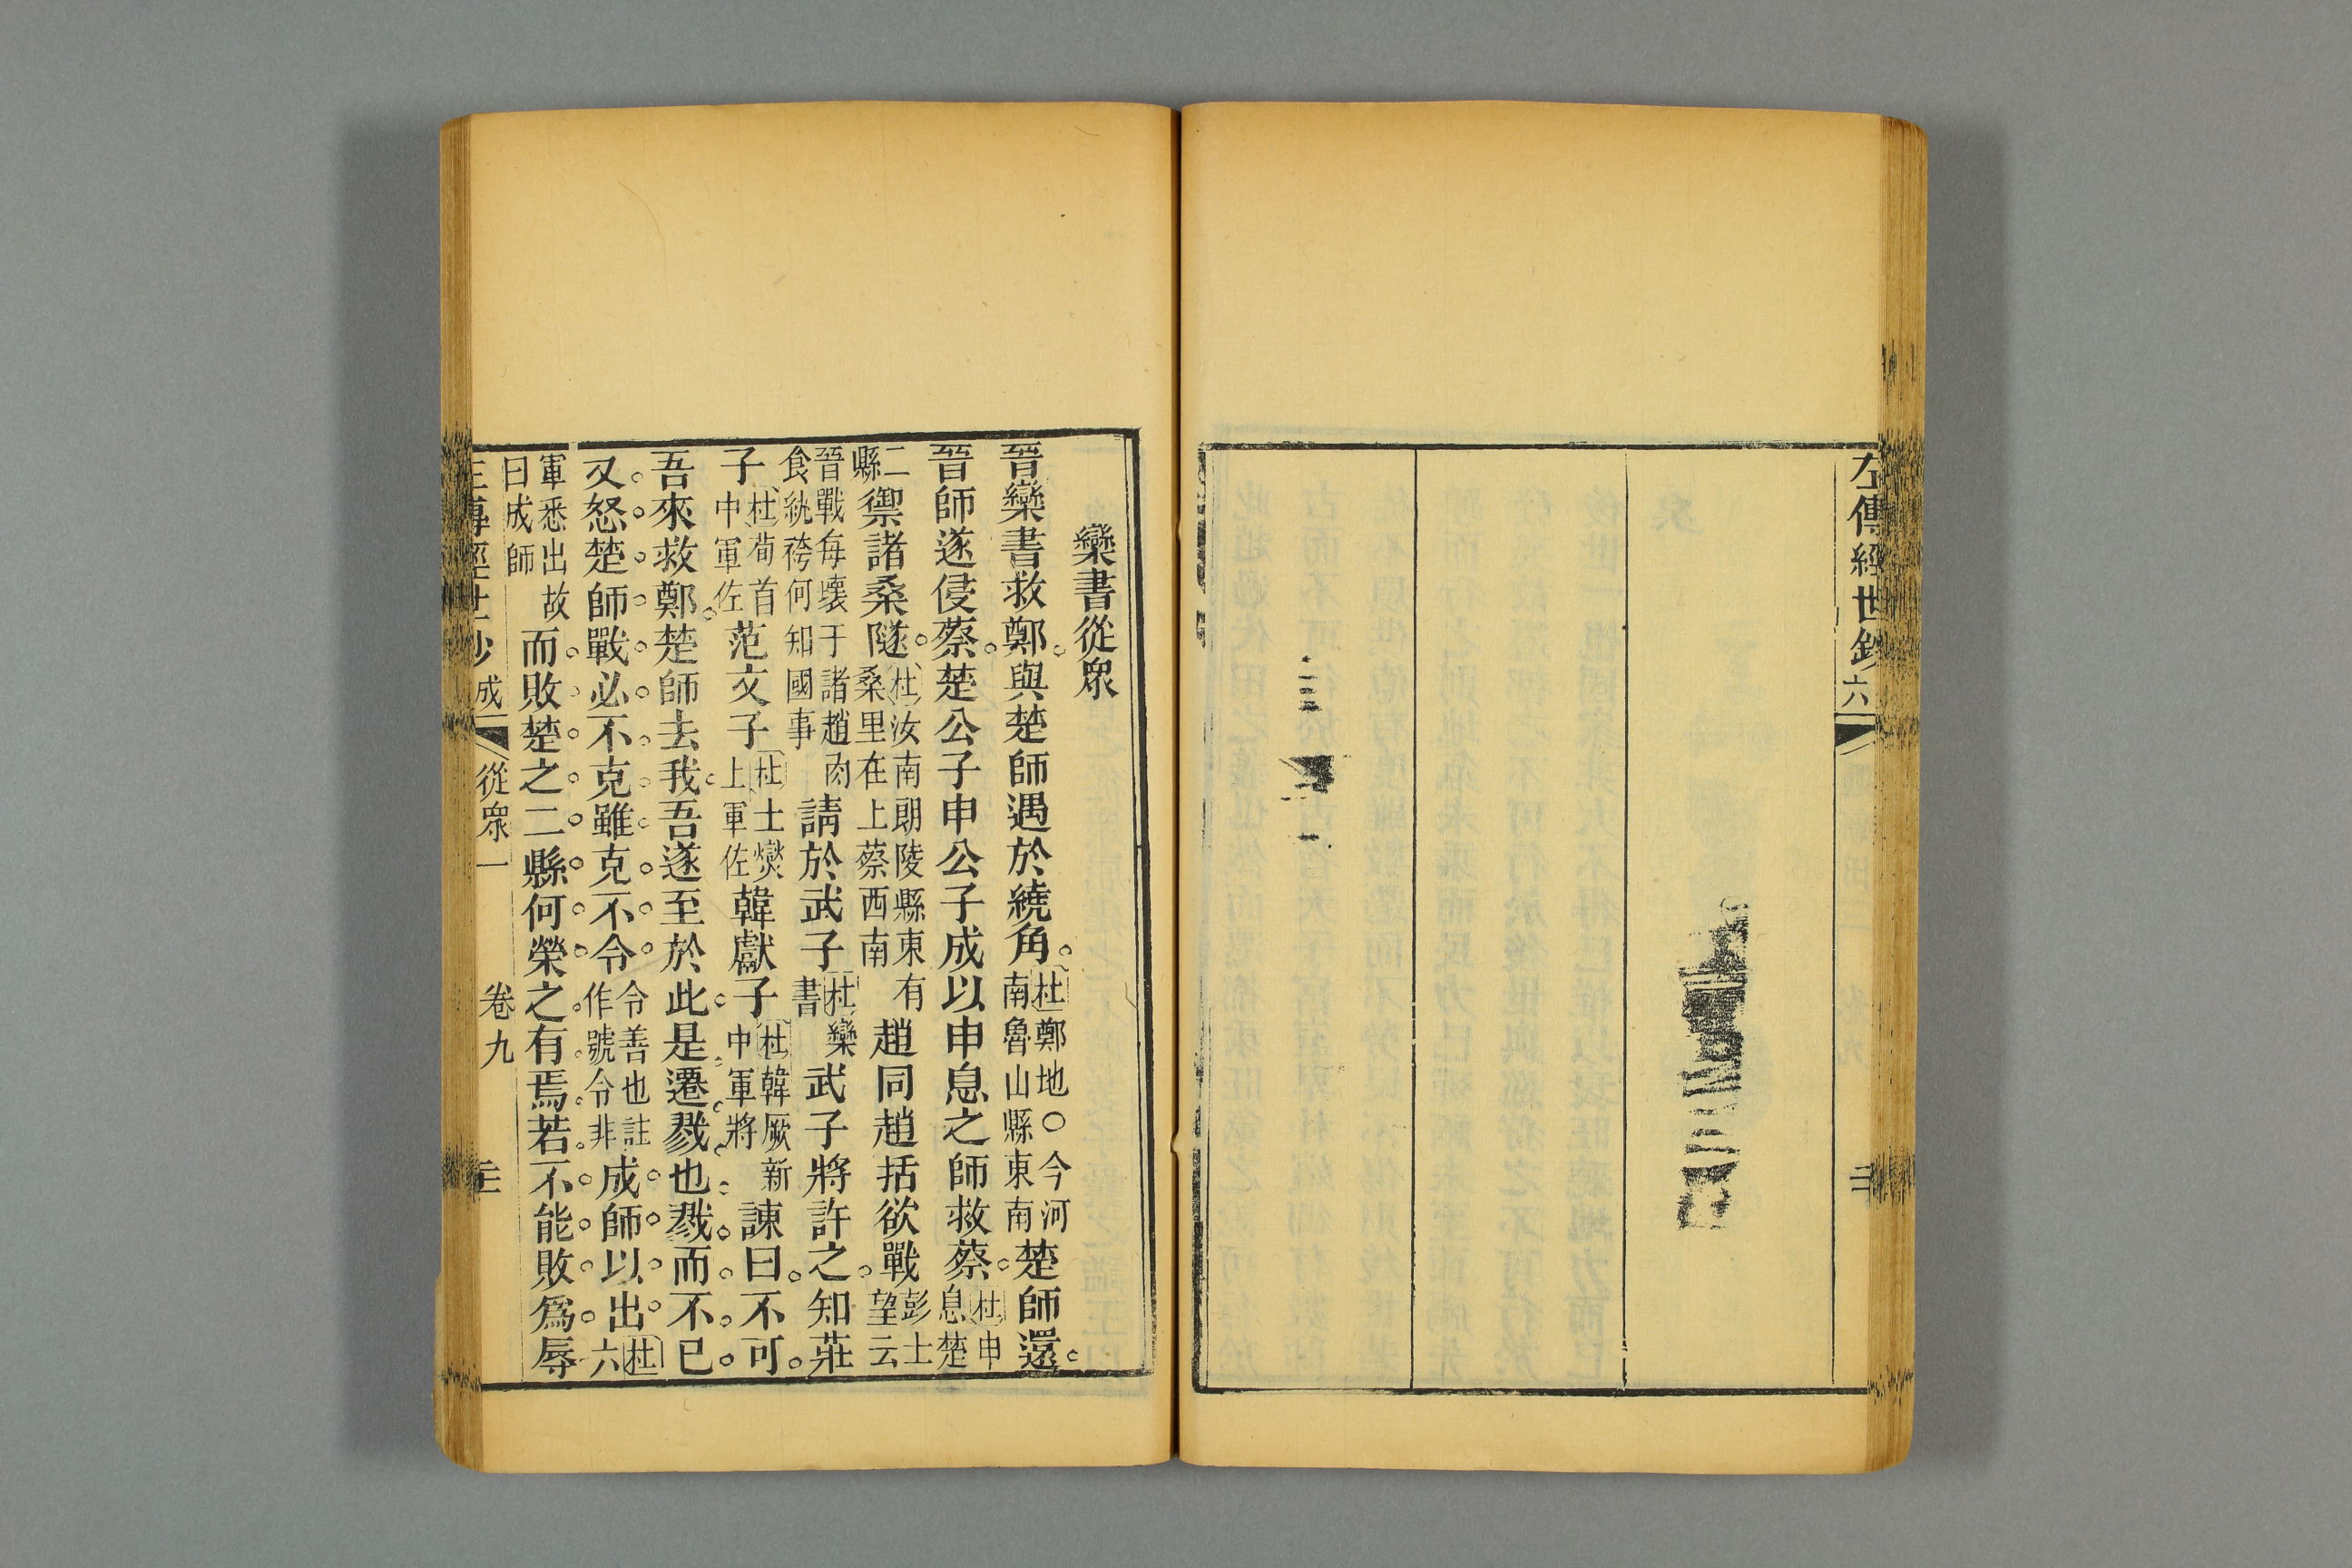 左傳經世鈔 六
欒書從眾
晉欒書救鄭與楚師遇於繞角。杜鄭地〇今河南魯山縣東南楚師還。
晉師遂侵蔡。楚公子申公子成以申息之師救蔡。杜申息楚
二縣禦諸桑隧。杜汝南朗陵縣東有桑里在上蔡西南趙同趙括欲戰。彭士望云
晉戰每壞于諸趙肉食紈袴何知國事請於武子杜欒書武子將許之知莊
子杜荀首中軍佐范文子杜士燮上軍佐韓獻子杜韓厥新中軍將諫曰。不可。
吾來救鄭。楚師去我。吾遂至於此。是遷戮也。戮而不已。
又怒楚師。戰必不克。雖克不令。令善也註作號令非成師以出。杜六
軍悉出故曰成師而敗楚之二縣。何榮之有焉。若不能敗。爲辱
成 從眾一 卷九